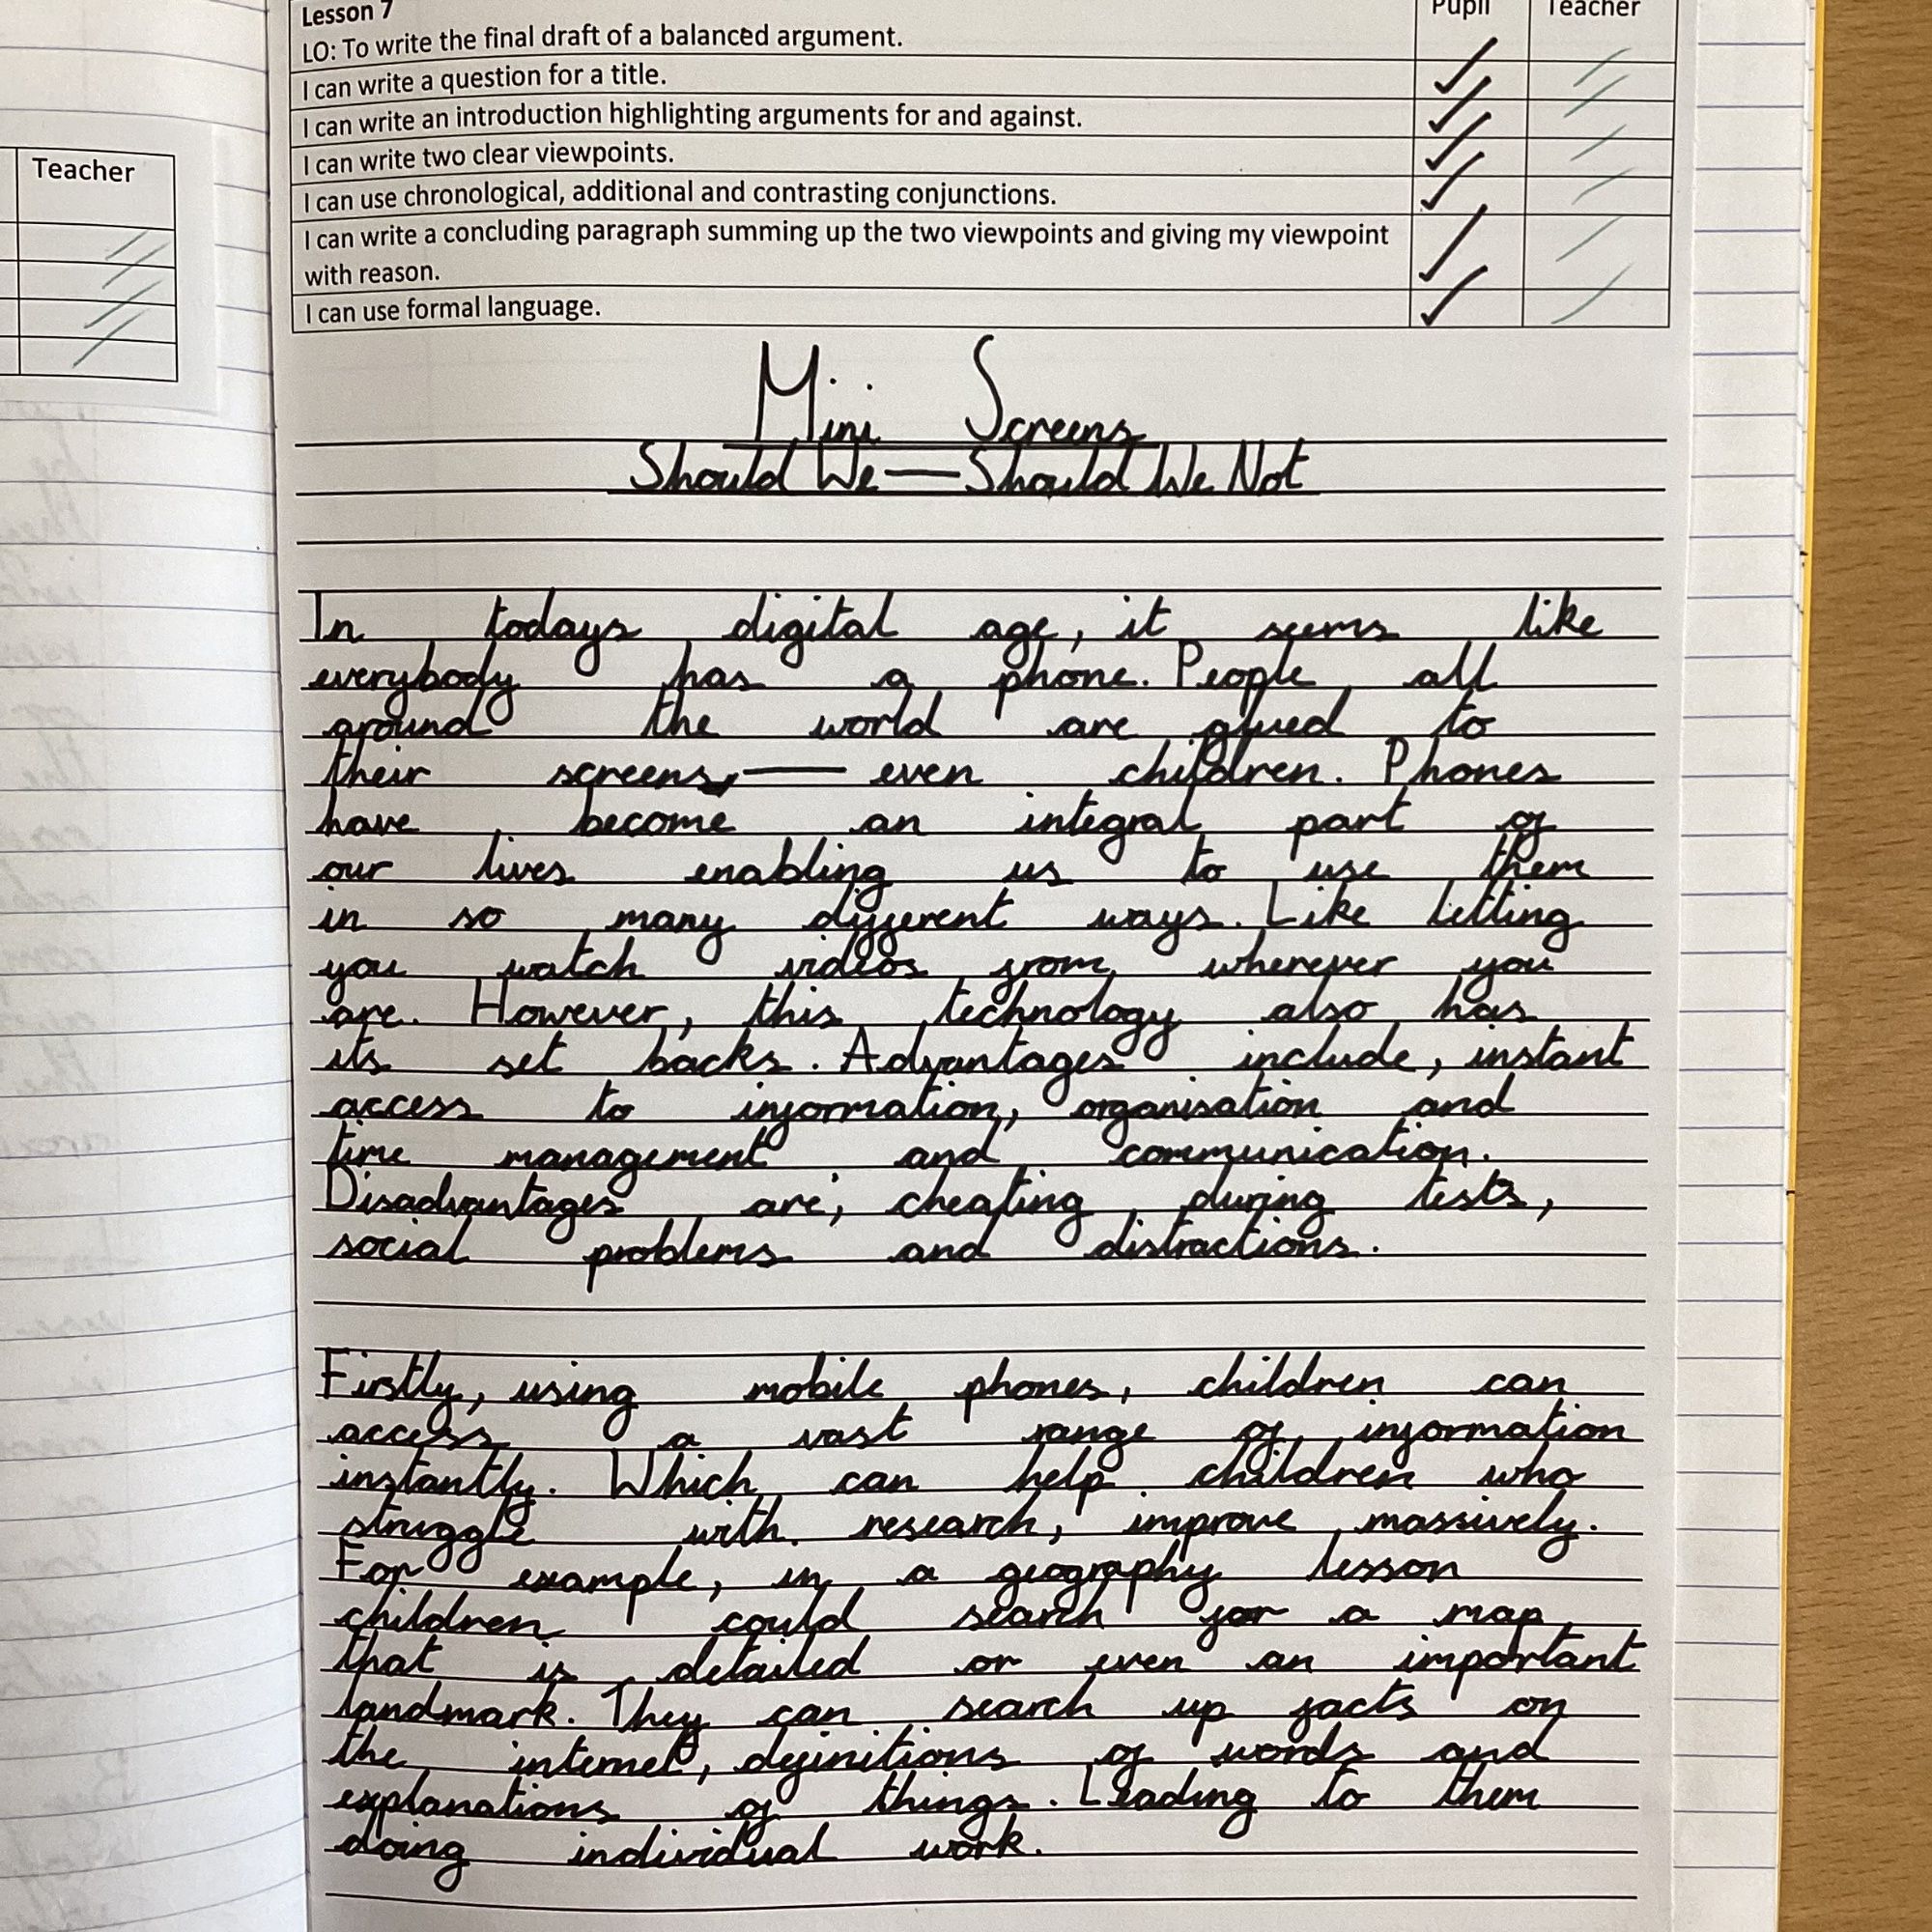 Lesson 7
Pupil
Teacher
LO: To write the final draft of a balanced argument.
I can write a question for a title.
I can write an introduction highlighting arguments for and against.
I can write two clear viewpoints.
I can use chronological, additional and contrasting conjunctions.
I can write a concluding paragraph summing up the two viewpoints and giving my viewpoint
with reason.
I can use formal language.
Teacher
Mini Screens
Should We — Should We Not
In todays digital age, it seems like
everybody has a phone. People all
around the world are glued to
their screens — even children. Phones
have become an integral part of
our lives enabling us to use them
in so many different ways. Like letting
you watch videos from wherever you
are. However, this technology also has
its set backs. Advantages include, instant
access to information, organisation and
time management and communication.
Disadvantages are, cheating during tests,
social problems and distractions.
Firstly, using mobile phones, children can
access a vast range of information
instantly. Which can help children who
struggle with research, improve massively.
For example, in a geography lesson
children could search for a map
that is detailed or even an important
landmark. They can search up facts on
the internet, definitions of words and
explanations of things. Leading to them
doing individual work.